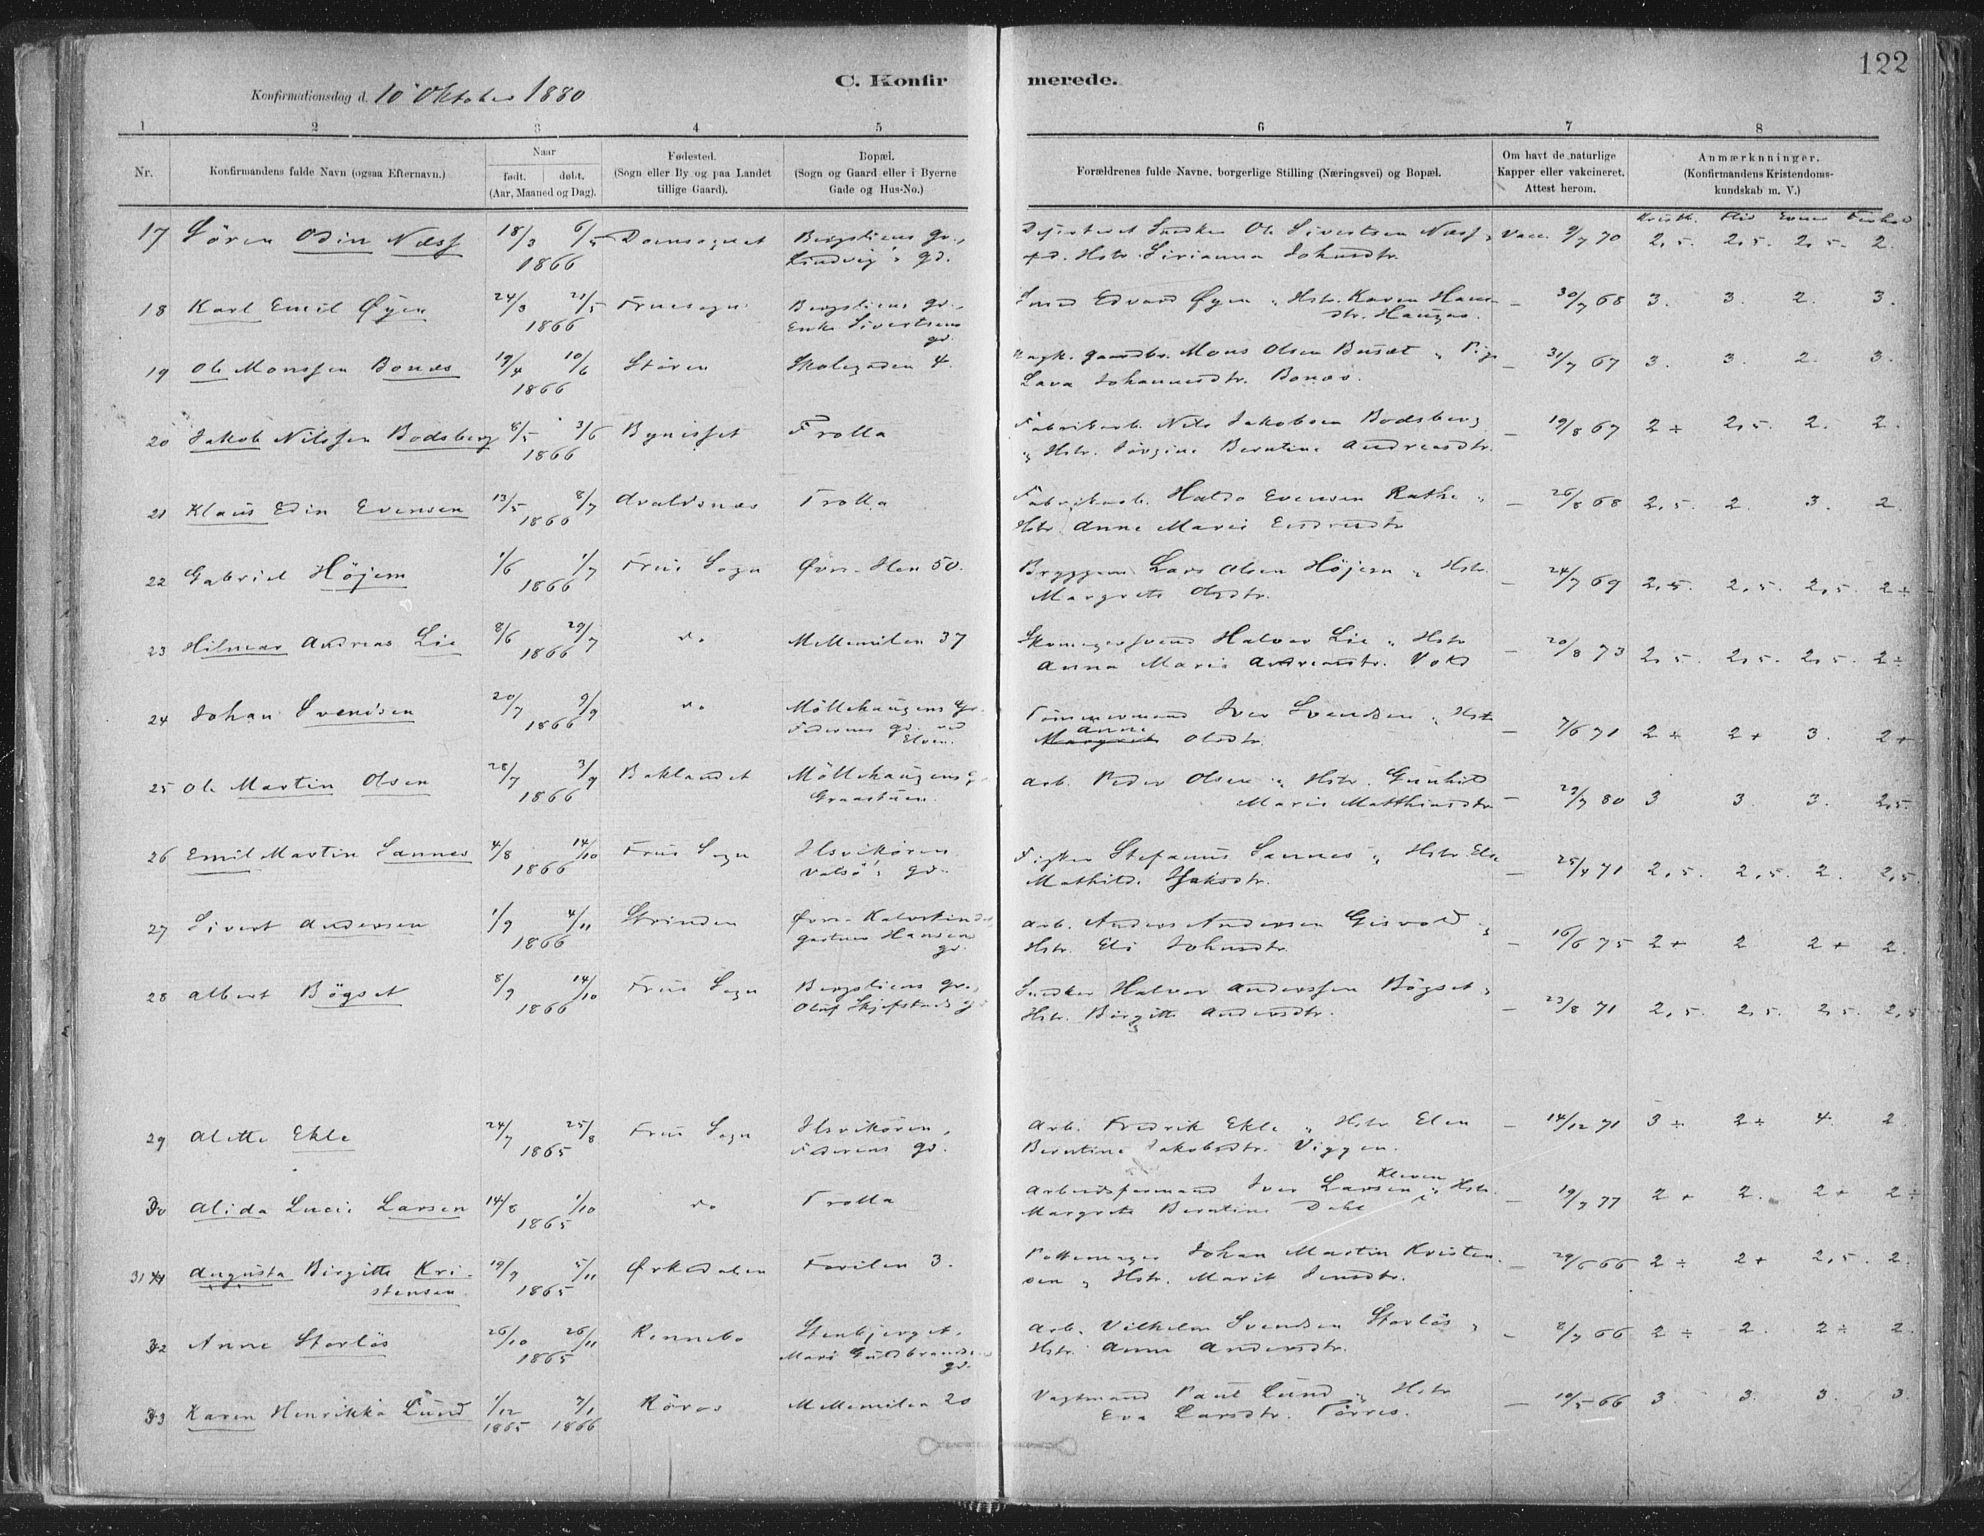 122
C. Konfirmerede.
Konfirmationsdag d. 10 Oktober 1880
1 2 3 4 5 6 7 8
Nr. Konfirmandens fulde Navn (ogsaa Efternavn.) Naar født. døbt. (Aar, Maaned og Dag). Fødested. (Sogn eller By og paa Landet tillige Gaard). Bopæl. (Sogn og Gaard eller i Byerne Gade og Hus-No.) Forældrenes fulde Navne, borgerlige Stilling (Næringsvei) og Bopæl. Om havt de naturlige Kapper eller vakcineret. Attest herom. Anmærknninger. (Konfirmandens Kristendomskundskab m. V.)
Kristk. Flid Evner Forhold
17 Sören Odin Næss 18/3 6/5 1866 Domsognet Bergsliens gr., Lindvig's gd. Sivertsen Næss, Hstr. Sirianna Johnsdtr. Vacc. 9/7 70 2,5. 2,5. 2,5. 2.
18 Karl Emil Øyen 24/3 21/5 1866 Fruesogn Bergsliens gr. Enke Sivertsens gd. Smed Edvard Øyen, Hstr. Karen Hansdtr. Hauges. – 30/7 68 3. 3. 2. 3.
19 Ole Monssen Bonæs 19/4 10/6 1866 Stören Skolegaden 4. Gaardbr. Mons Olsen Buset, Pige Lava Johannesdtr. Bonæs. – 31/7 67 3. 3. 2. 3.
20 Jakob Nilssen Bodsberg 8/5 3/6 1866 Bynesset Trolla Fabrikarb. Nils Jakobsen Bodsberg, Hstr. Jörgine Berntine Andreasdtr. – 19/8 67 2 ÷ 2,5. 2. 2.
21 Klaus Edin Evensen 13/5 8/7 1866 Avaldsnæs Trolla Fabrikarb. Haldo Evensen Rathe, Hstr. Anne Marie – 26/8 68 2,5 2. 3. 2.
22 Gabriel Höjem 1/6 1/7 1866 Frue Sogn Øvre Ilen 50. Lars Olsen Höjem, Hstr. Margrete Olsdtr. – 24/7 69 2,5. 2,5. 2,5. 2 ÷
23 Hilmar Andreas Lie 8/6 29/7 1866 do Mellemilen 37 Skomagersvend Halvor Lie, Hstr. Anna Marie Andreasdtr. Vold – 20/8 73 2,5. 2,5. 2,5. 2 ÷
24 Johan Svendsen 20/7 9/9 1866 do Möllehaugens gr. gd. ved Elven. Tömmermand Iver Svendsen, Hstr. Anne Margrete Olsdtr. – 7/6 71 2 ÷ 2 + 3. 2 +
25 Ole Martin Olsen 28/7 3/9 1866 Baklandet Möllehaugens Graastuen. Arb. Peder Olsen, Hstr. Gunhild Marie Matthiasdtr. – 29/7 80 3 3. 3. 2,5.
26 Emil Martin Sannes 4/8 14/10 1866 Frue Sogn Ilsvikören Valsö's gd. Fisker Stefanus Sannes, Hstr. Else Mathilde Isaksdtr. – 25/4 71 2,5. 2,5. 2. 2,5
27 Sivert Andersen 1/9 4/11 1866 Strinden Øvre Kalvskindet gartner Hansens gd. Arb. Anders Andersen Gisvold, Hstr. Eli Johnsdtr. – 16/6 75 2 + 2 2 + 2.
28 Albert Bögset 8/9 14/10 1866 Frue Sogn Bergsliens gr., Oluf Skjefstads gd. Snedker Halvor Anderssen Bögset, Hstr. Birgitte Andersdtr. – 23/8 71 2,5. 2,5. 2,5. 2,5
29 Alette Ekle 24/7 25/8 1865 Frue Sogn Ilsvikören, gd. Arb. Fredrik Ekle, Hstr. Elen Berntine Jakobsdtr. Viggen. – 14/12 71 3 ÷ 2 ÷ 4. 2.
30 Alida Lucie Larsen 14/8 1/10 1865 do Trolla Arbeidsformand Iver Larsen Kleven, Hstr. Margrete Berntine Dahl – 19/7 77 2 + 2. 2 + 2 ÷
31 Augusta Birgitte Kristensen 19/9 5/11 1865 Ørkedalen Forilen 3. Pottemager Johan Martin Kristensen, Hstr. Marit Jensdtr. – 29/6 66 2 ÷ 2 + 2,5. 2.
32 Anne Storlös 26/10 26/11 1865 Rennebo Stenbjerget, Mari Guldbrandsens gd. Arb. Vilhelm Svendsen Storlös, Hstr. Anne Andersdtr. – 8/7 66 2 ÷ 2. 2 ÷ 2.
33 Karen Henrikka Lund 1/12 1865 7/1 1866 Röros Mellemilen 20 Vagtmand Paul Lund, Hstr. Eva Larsdtr. Törres. – 19/5 66 3 3. 3. 3.